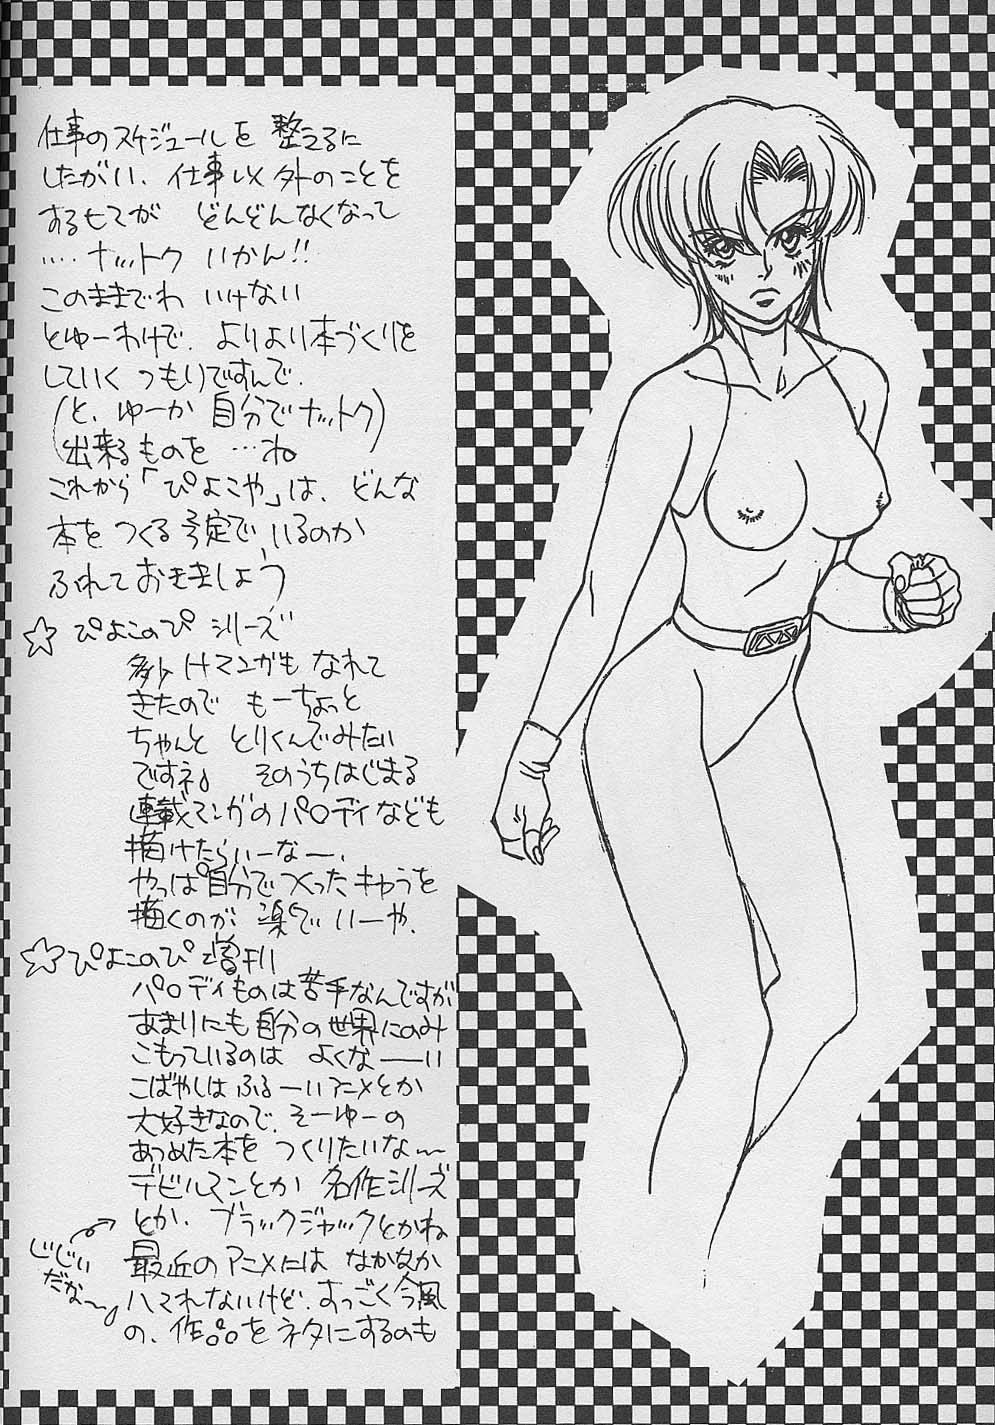 仕事のスケジュールを 整えるに
したがい、仕事以外のことを
するヒマが どんどんなくなって
‥‥ナットク いかん!!
このままでわ いけない
とゆーわけで、よりより本づくりを
していく つもりですんで、
(と、ゆーか 自分でナットク)
(出来るものを …ね
これから「ぴよこや」は、どんな
本を つくる予定で、いるのか
ふれておきましょう
☆ ぴよこのぴ シリーズ
多少 Hマンガも なれて
きたので もーちょっと
ちゃんと とりくんでみたい
ですネ♪ そのうちはじまる
連載マンガのパロディなども
描けたらいーなー、
やっぱ自分でつくったキャラを
描くのが 楽でいーや、
☆ぴよこのぴ 増刊
パロディものは苦手なんですが
あまりにも自分の世界にのみ
こもっているのは よくなーーい
こばやしは ふるーいアニメとか
大好きなので、そーゆーの
あつめた本を つくりたいな〜
デビルマンとか 名作シリーズ
とか、ブラックジャックとかね
じじい
だな〜
最近のアニメには なかなか
ハマれないけど、すっごく今風
の、作品をネタにするのも